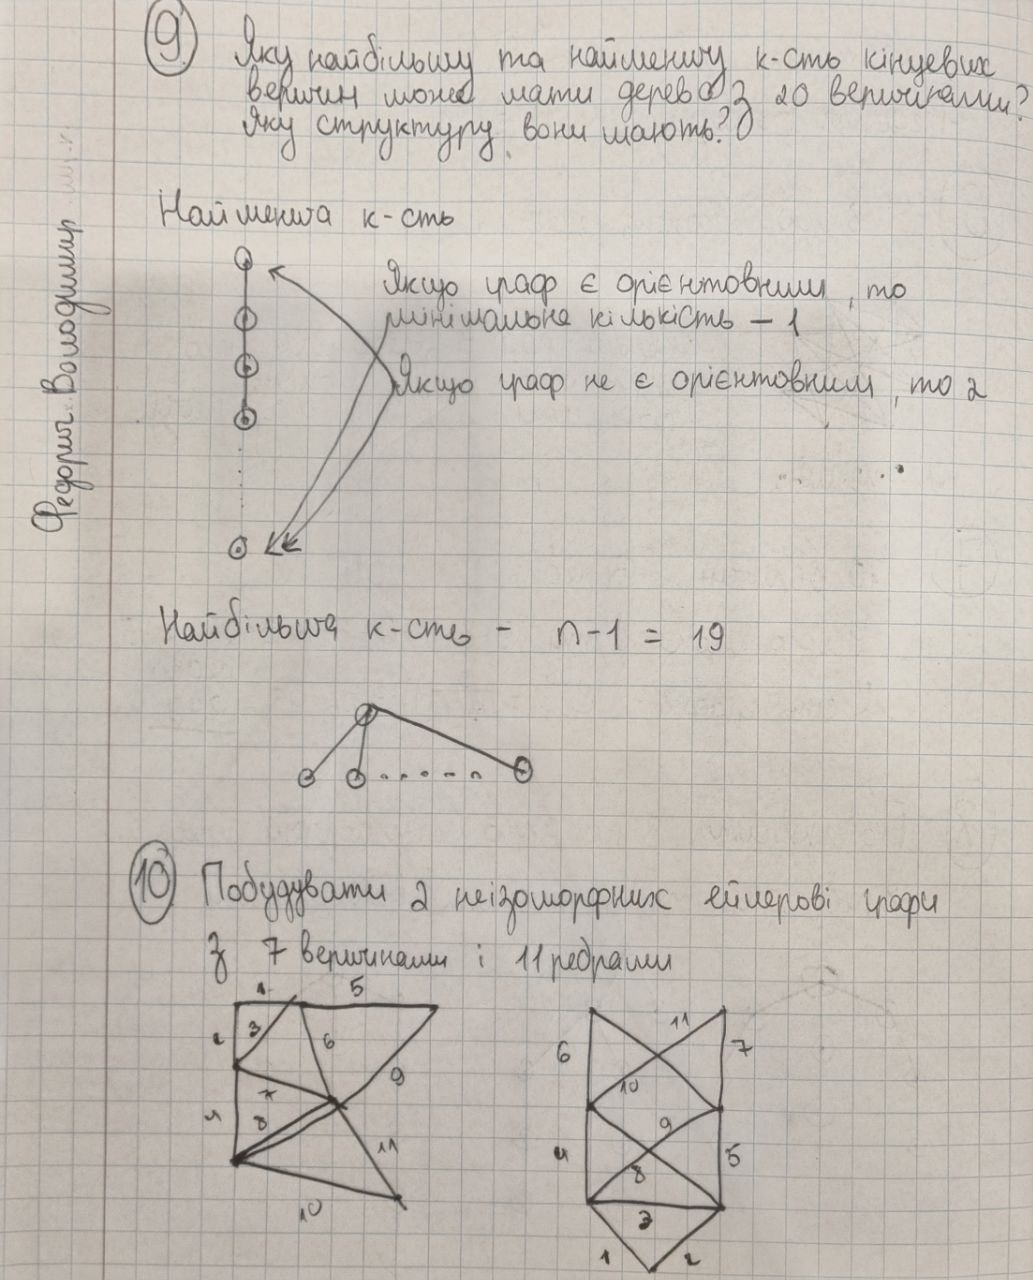 9 Яку найбільшу та найменшу к-сть кінцевих
вершин може мати дерево з 20 вершинами?
Яку структуру вони мають?
Федорич Володимир
Найменша к-сть
Якщо граф є орієнтовним, то
мінімальна кількість – 1
Якщо граф не є орієнтовним, то 2
Найбільша к-сть - n-1 = 19
10 Побудувати 2 неізоморфних ейлерові графи
з 7 вершинами і 11 ребрами
1 5
2 3 6
7 9
4 8
11
10
11
6 7
10
9
4 5
8
3
1 2